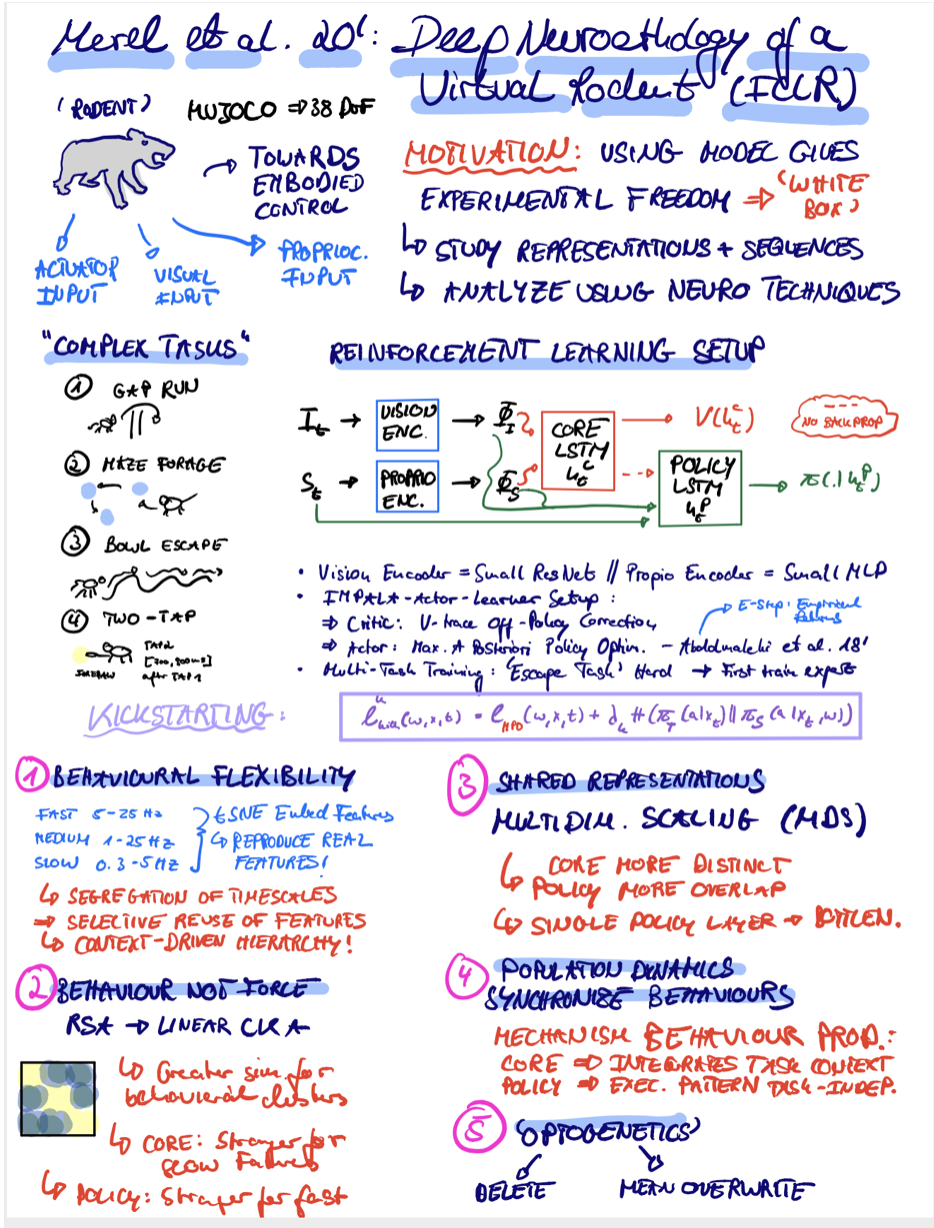 Merel et al. 20': Deep Neuroethology of a
Virtual Rodent (ICLR)
(RODENT) MUJOCO ⇒ 38 DoF
→ TOWARDS
EMBODIED
CONTROL
ACTUATOR
INPUT
VISUAL
INPUT
PROPRIOC.
INPUT
MOTIVATION: USING MODEL GIVES
EXPERIMENTAL FREEDOM ⇒ 'WHITE
BOX'
↳ STUDY REPRESENTATIONS + SEQUENCES
↳ ANALYZE USING NEURO TECHNIQUES
"COMPLEX TASKS"
① GAP RUN
② MAZE FORAGE
③ BOWL ESCAPE
④ TWO-TAP
TAP 2
after TAP 1
REINFORCEMENT LEARNING SETUP
I_t → VISION
ENC. → Φ_I
S_t → PROPRIO
ENC. → Φ_S
CORE
LSTM
h_t^c
→ V(h_t^c)
NO BACKPROP
POLICY
LSTM
h_t^P
→ π(.|h_t^P)
• Vision Encoder = Small ResNet // Propio Encoder = Small MLP
• IMPALA-Actor-Learner Setup:
⇒ Critic: V-trace Off-Policy Correction
E-Step: Empirical
Returns
⇒ Actor: Max. A Posteriori Policy Optim. - Abdolmaleki et al. 18'
• Multi-Task Training: 'Escape Task' Hard → First train expert
KICKSTARTING:
(w,x,t) = ℓ_MPO(w,x,t) + λ_k H(π_T(a|x_t) || π_S(a|x_t,w))
① BEHAVIOURAL FLEXIBILITY
FAST 5-25 Hz
MEDIUM 1-25 Hz
SLOW 0.3-5 Hz
tSNE Embed Features
↳ REPRODUCE REAL
FEATURES!
↳ SEGREGATION OF TIMESCALES
⇒ SELECTIVE REUSE OF FEATURES
↳ CONTEXT-DRIVEN HIERARCHY!
② BEHAVIOUR NOT FORCE
RSA → LINEAR CKA
↳ Greater sim for
behavioral clusters
↳ CORE: Stronger for
slow Features
↳ POLICY: Stronger for fast
③ SHARED REPRESENTATIONS
MULTIDIM. SCALING (MDS)
↳ CORE MORE DISTINCT
POLICY MORE OVERLAP
↳ SINGLE POLICY LAYER → BOTTLEN.
④ POPULATION DYNAMICS
SYNCHRONIZE BEHAVIOURS
MECHANISM BEHAVIOUR PROD.:
CORE ⇒ INTEGRATES TASK CONTEXT
POLICY ⇒ EXEC. PATTERN TASK-INDEP.
⑤ 'OPTOGENETICS'
DELETE
MEAN OVERWRITE